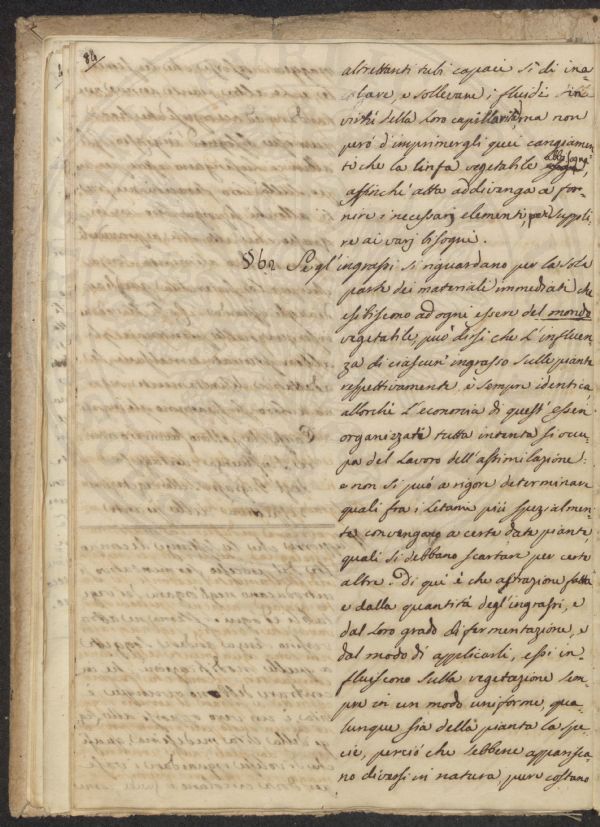 84
altrettanti tubi capaci sì di ina
=lzare, e sollevare i fluidi in
virtù della loro capillarità, ma non
però d'imprimergli quei cangiamen
ti che la linfa vegetabile abbisogna,
affinché atta addivenga a for-
nire i necessarj elementi, per suppli
re ai varj bisogni.
§ 62 Se gl'ingrassi si riguardano per la sola
parte dei materiali immediati che
esibiscono ad ogni essere del mondo
vegetabile, può dirsi che l'influen
za di ciascun' ingrasso sulle piante
respettivamente è sempre identica,
allorché l'economia di quest' esseri
organizzati tutta intenta si occu
pa del lavoro dell'assimilazione:
e non si può a rigore determinare
quali fra i letami più spezialmen-
te convengano a certe date piante
quali si debbano scartare per certe
altre. Di qui è che astrazione fatta
e dalla quantità degl'ingrassi, e
dal loro grado di fermentazione, e
dal modo di applicarli, essi in-
fluiscono sulla vegetazione sem
pre in un modo uniforme, qua
lunque sia della pianta la spe
cie, perciò che sebbene appарisca
no diversi in natura pure costano